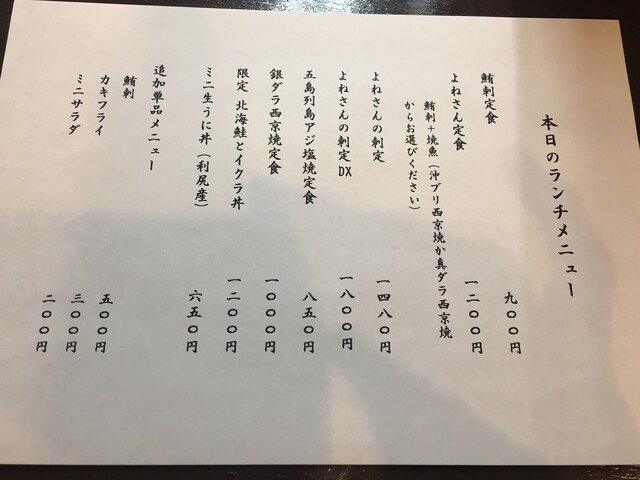 本日のランチメニュー
鮪刺定食 九〇〇円
よねさん定食 一二〇〇円
鮪刺+焼魚(沖ブリ西京焼か真ダラ西京焼
からお選びください)
よねさんの刺定 一四八〇円
よねさんの刺定DX 一八〇〇円
五島列島アジ塩焼定食 八五〇円
銀ダラ西京焼定食 一〇〇〇円
限定 北海鮭とイクラ丼 一二〇〇円
ミニ生うに丼(利尻産) 六五〇円
追加単品メニュー
鮪刺 五〇〇円
カキフライ 三〇〇円
ミニサラダ 二〇〇円